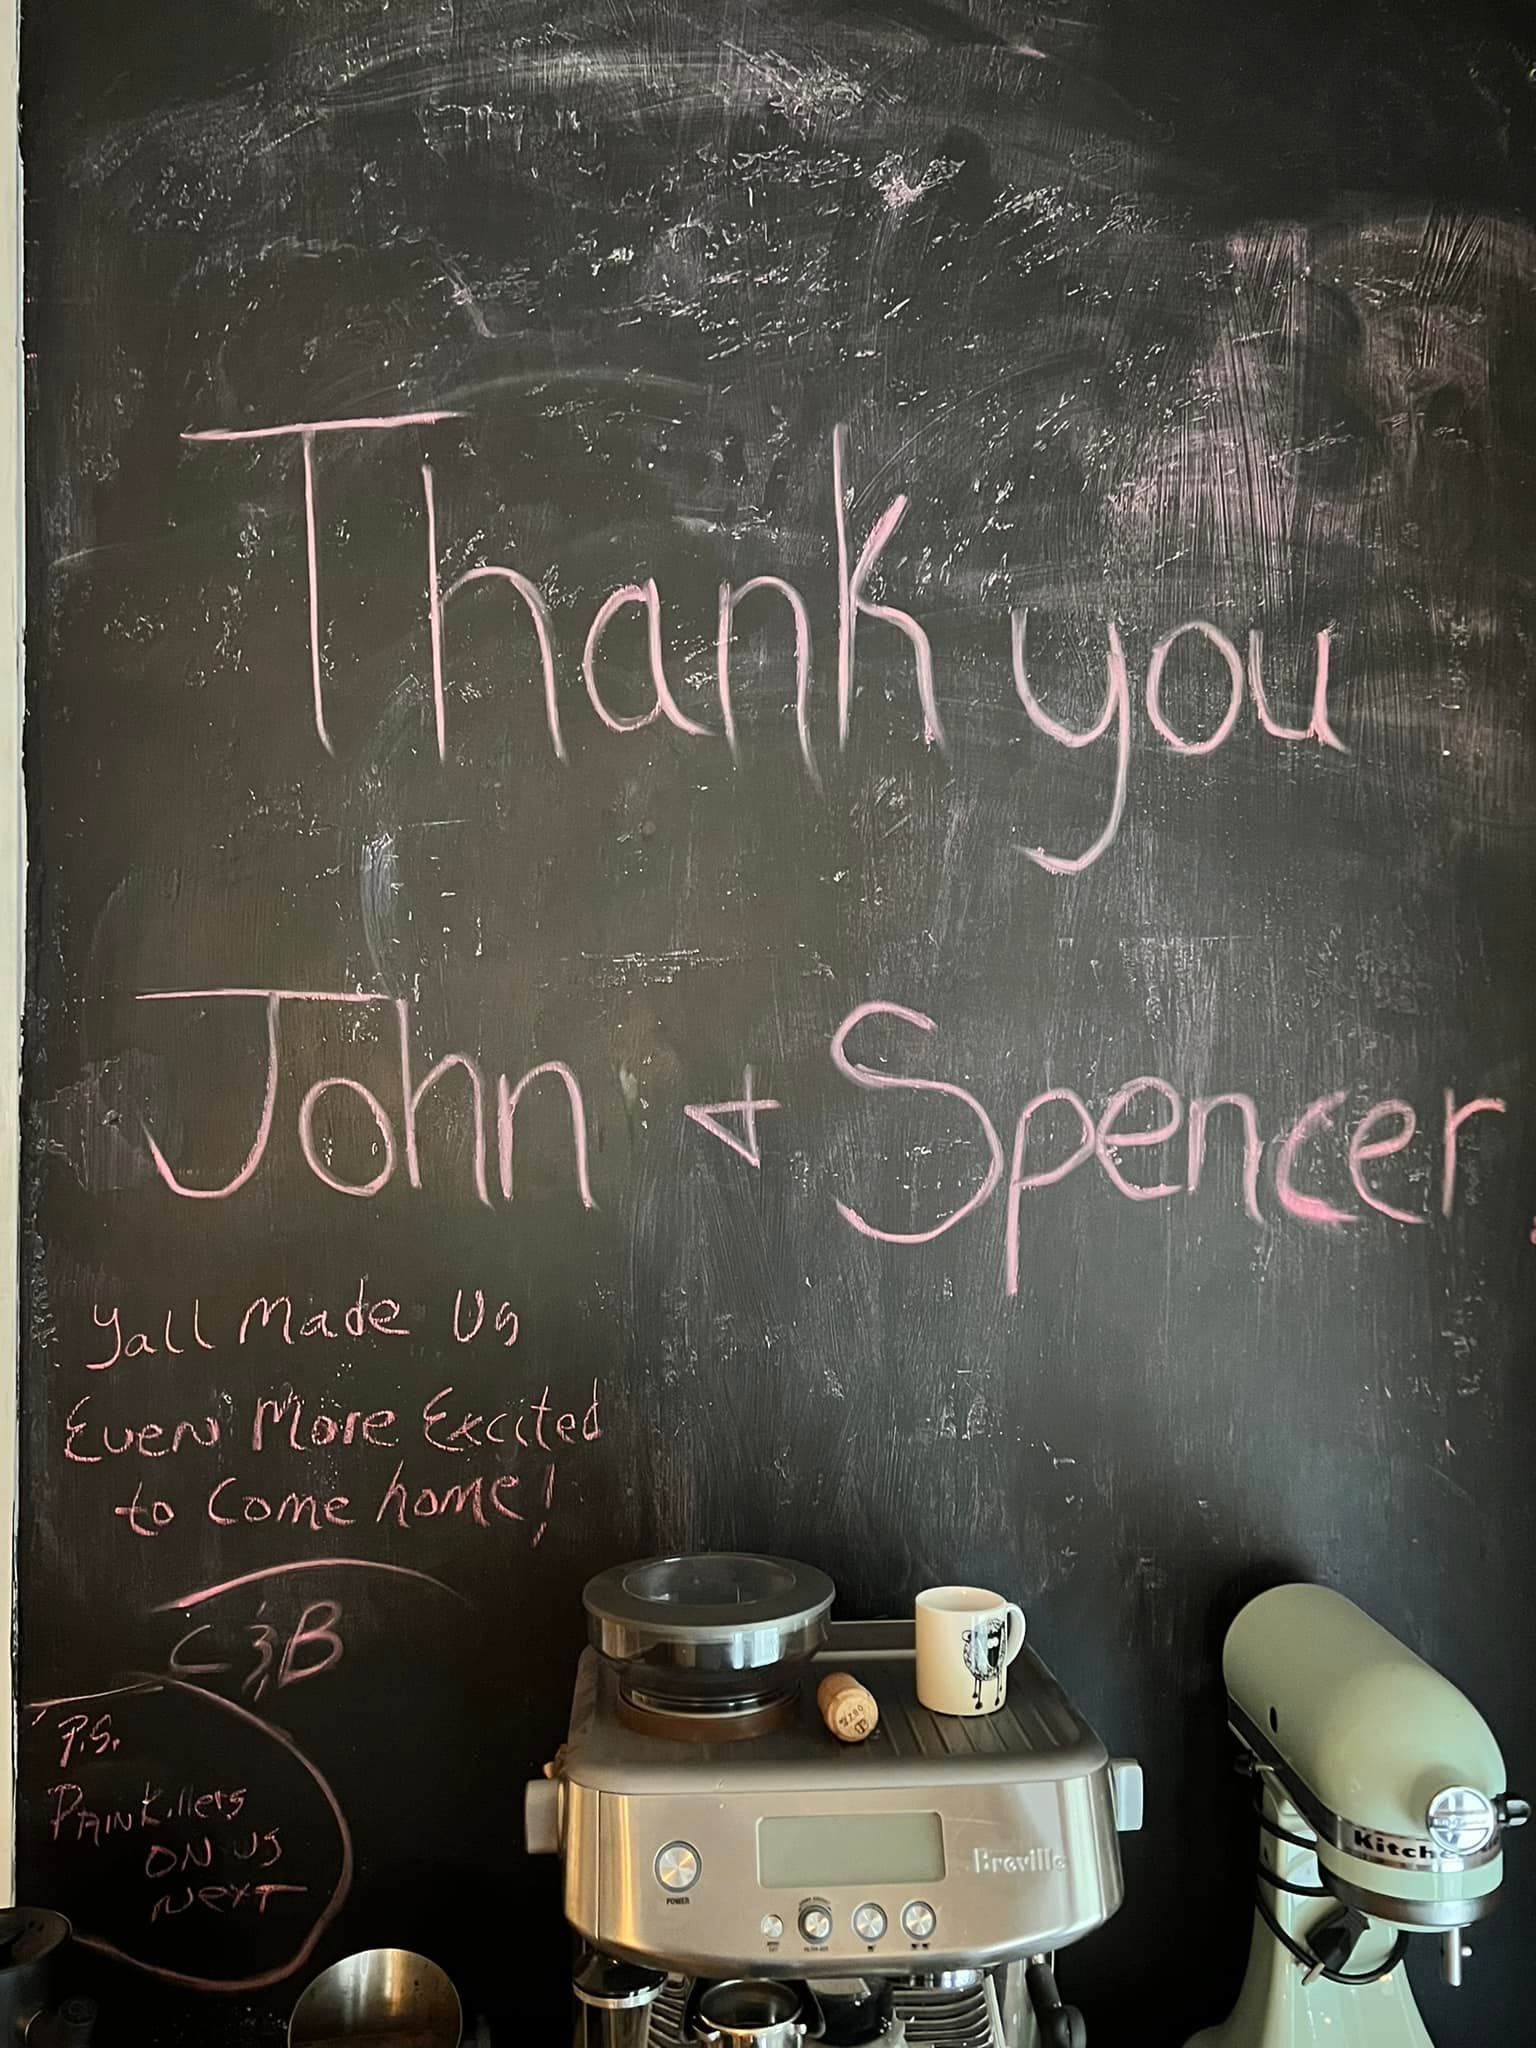 Thank you
John & Spencer
Yall Made Us
Even More Excited
to Come home!
C & B
P.S.
PAINKillers
ON US
NEXT
Breville
POWER
Kitche